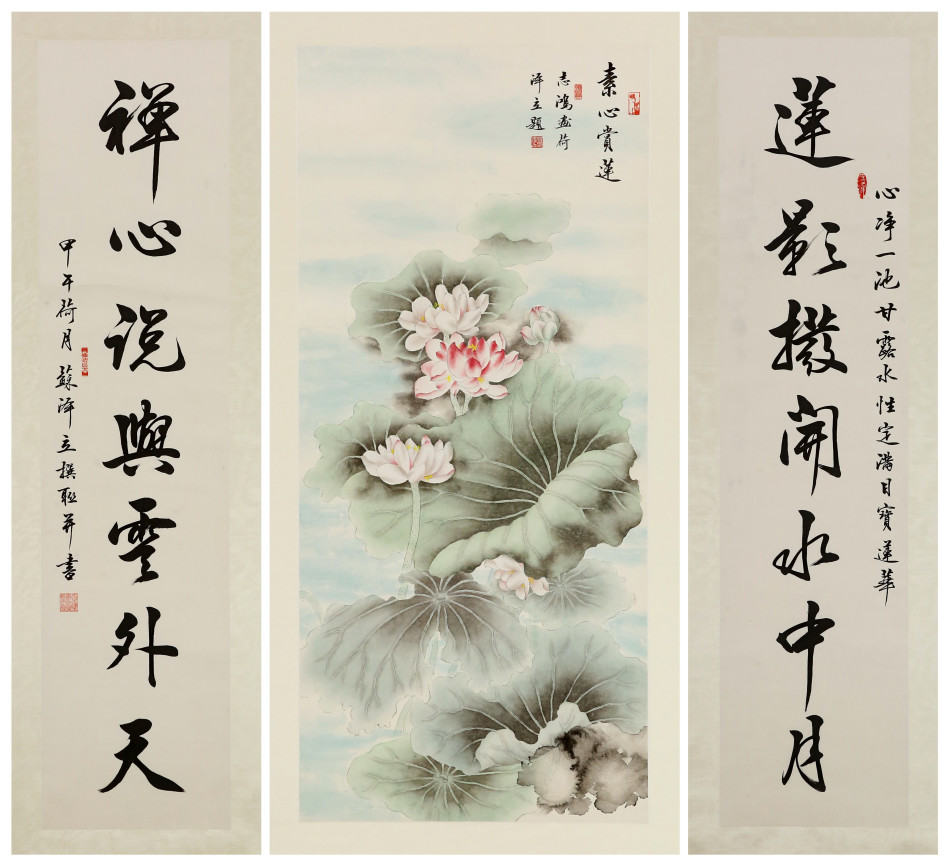 蓮影撥開水中月
心净一池甘露水性定滿目寶蓮華
素心賞蓮
志鴻畫荷
泽立題
禪心说與雲外天
甲午荷月 蘇泽立撰聯并書